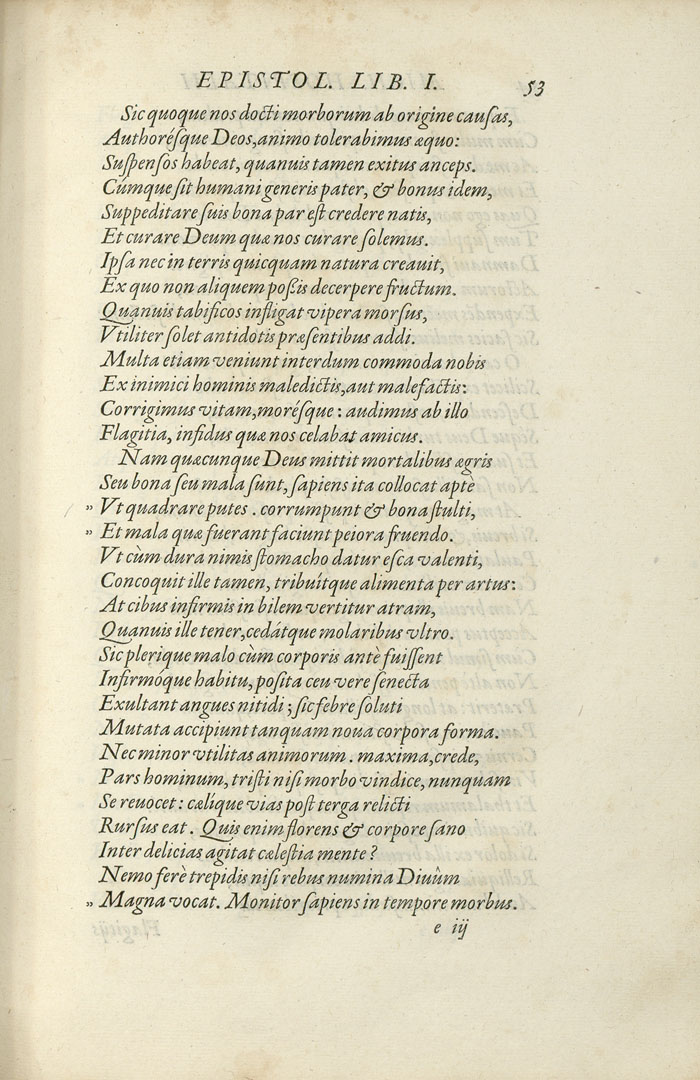 EPISTOL. LIB. I. 53
Sic quoque nos docti morborum ab origine causas,
Authorésque Deos,animo tolerabimus æquo:
Suspensos habeat, quanuis tamen exitus anceps.
Cúmque sit humani generis pater, & bonus idem,
Suppeditare suis bona par est credere natis,
Et curare Deum quæ nos curare solemus.
Ipsa nec in terris quicquam natura creauit,
Ex quo non aliquem poßis decerpere fructum.
Quanuis tabificos infligat vipera morsus,
Vtiliter solet antidotis præsentibus addi.
Multa etiam veniunt interdum commoda nobis
Ex inimici hominis maledictis,aut malefactis:
Corrigimus vitam,morésque: audimus ab illo
Flagitia, infidus quæ nos celabat amicus.
Nam quæcunque Deus mittit mortalibus ægris
Seu bona seu mala sunt, sapiens ita collocat aptè
„ Vt quadrare putes. corrumpunt & bona stulti,
„ Et mala quæ fuerant faciunt peiora fruendo.
Vt cùm dura nimis stomacho datur esca valenti,
Concoquit ille tamen, tribuítque alimenta per artus:
At cibus infirmis in bilem vertitur atram,
Quanuis ille tener,cedátque molaribus vltro.
Sic plerique malo cùm corporis antè fuissent
Infirmóque habitu, posita ceu vere senecta
Exultant angues nitidi; sic febre soluti
Mutata accipiunt tanquam noua corpora forma.
Nec minor vtilitas animorum. maxima,crede,
Pars hominum, tristi nisi morbo vindice, nunquam
Se reuocet: cælíque vias post terga relicti
Rursus eat. Quis enim florens & corpore sano
Inter delicias agitat cælestia mente?
Nemo ferè trepidis nisi rebus numina Diuûm
„ Magna vocat. Monitor sapiens in tempore morbus.
e iij